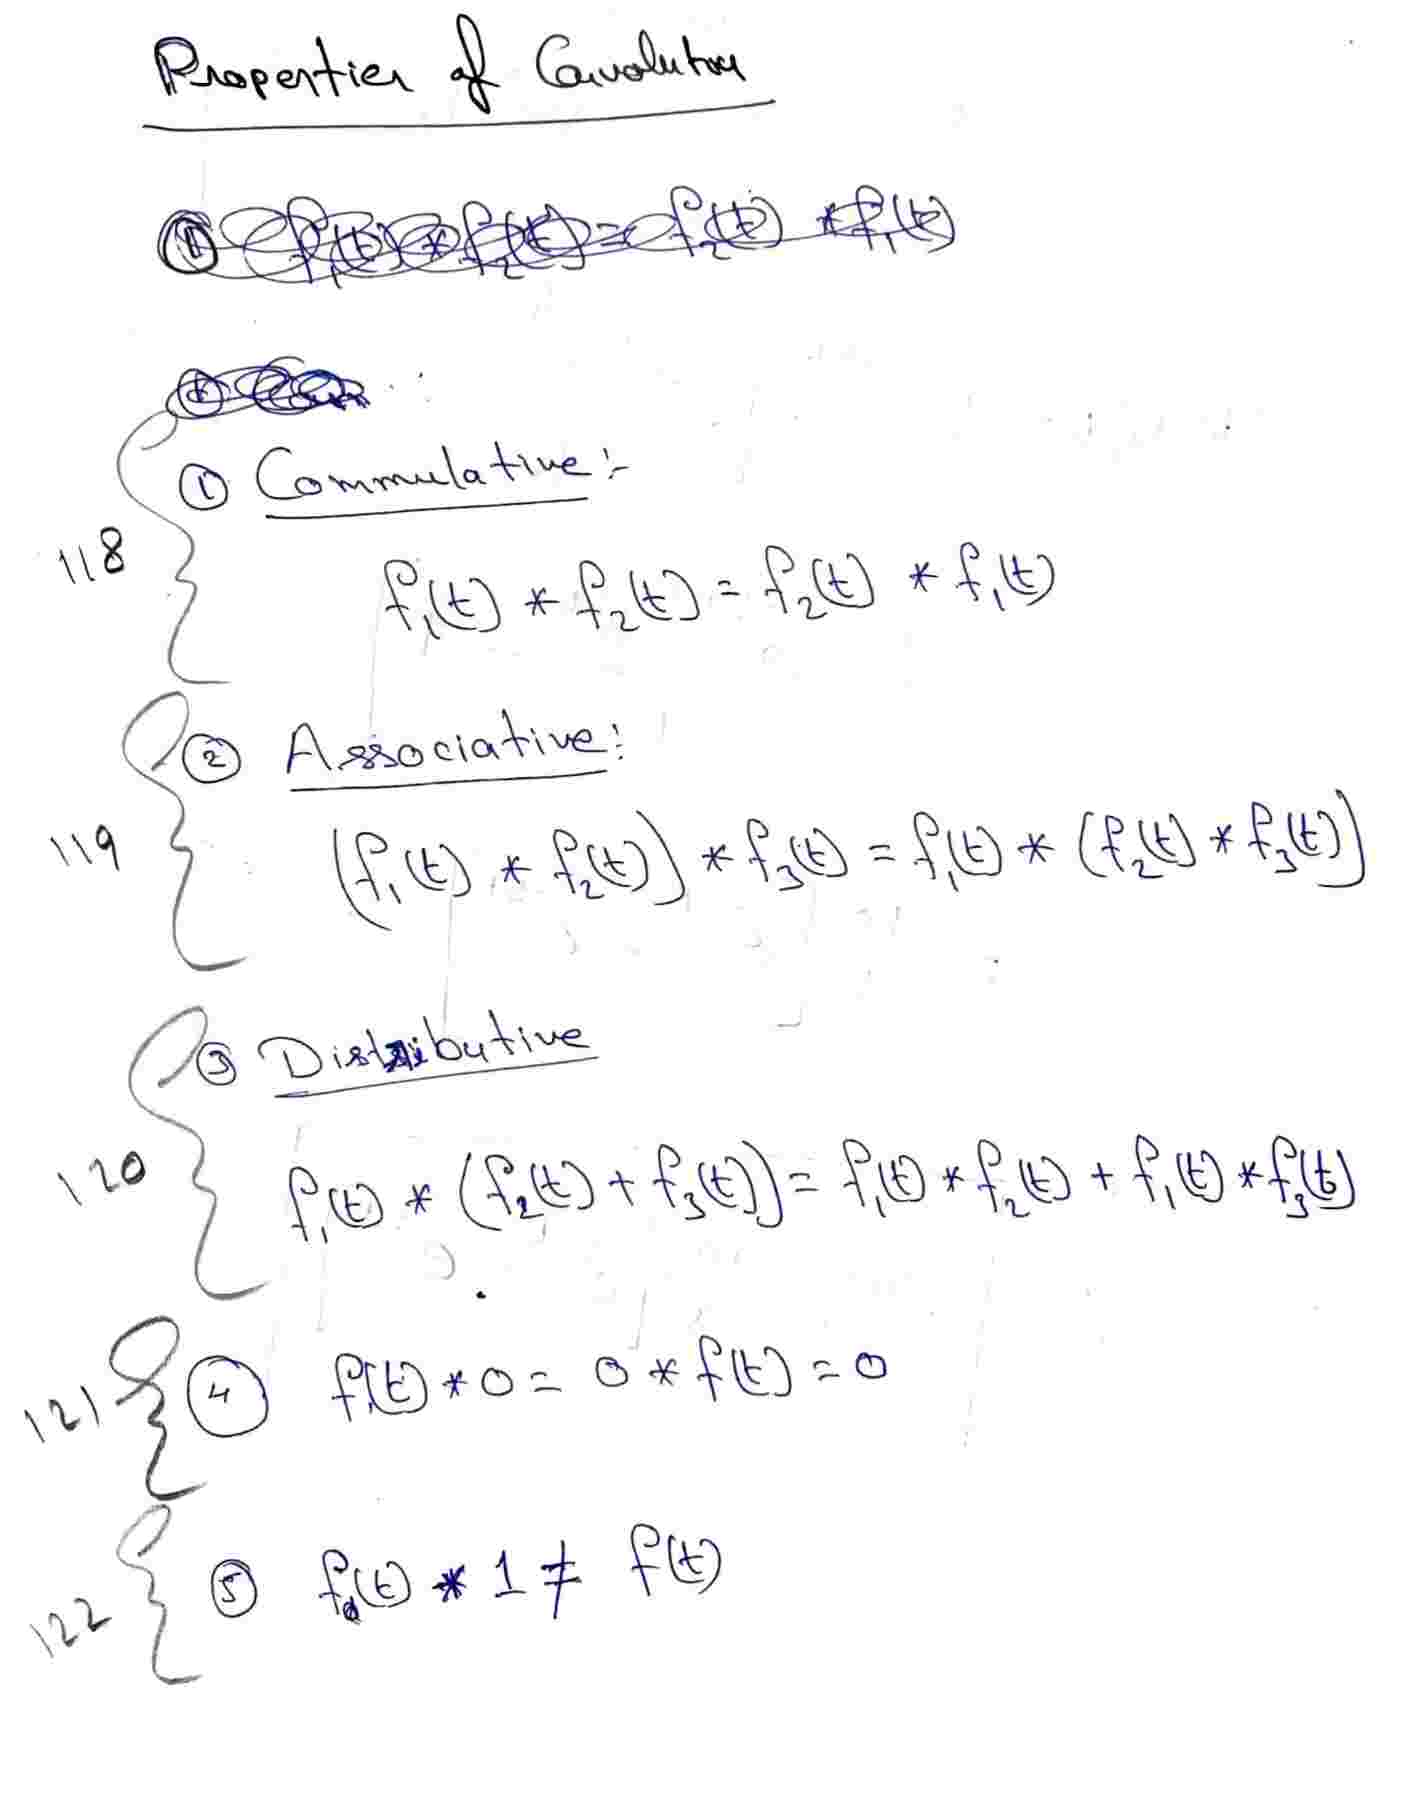 Properties of Convolution
① f₁(t) * f₂(t) = f₂(t) * f₁(t)
① Commulative:-
118
f₁(t) * f₂(t) = f₂(t) * f₁(t)
② Associative:
119
(f₁(t) * f₂(t)) * f₃(t) = f₁(t) * (f₂(t) * f₃(t))
③ Distributive
120
f₁(t) * (f₂(t) + f₃(t)) = f₁(t) * f₂(t) + f₁(t) * f₃(t)
121 ④ f₁(t) * 0 = 0 * f(t) = 0
122 ⑤ f(t) * 1 ≠ f(t)